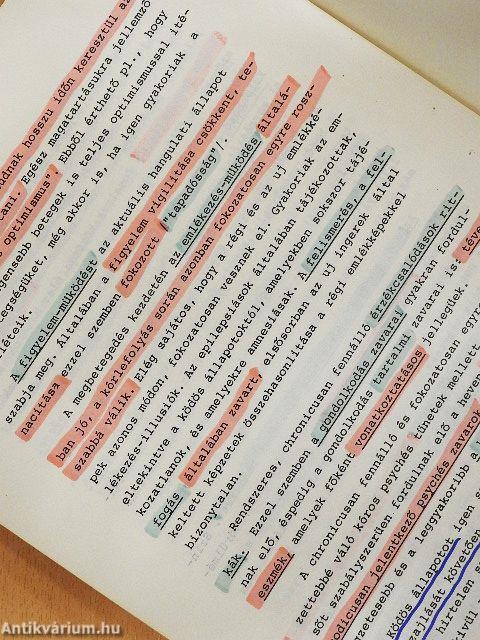 udnak hosszu időn keresztül az
tani. Egész magatartásukra jellemző
optimismus". Ebből érthető pl., hogy
gensebb betegek is teljes optimismussal ité-
egségüket, még akkor is, ha igen gyakoriak a
A figyelem-működést az aktuális hangulati állapot
szabja meg. Általában a figyelem vigilitása csökkent, te-
nacitása ezzel szemben fokozott "tapadósság"/.
A megbetegedés kezdetén az emlékezés-működés általá-
ban jó, a kórlefolyás során azonban fokozatosan egyre rosz-
szabbá válik. Elég sajátos, hogy a régi és az uj emlékké-
pek azonos módon, fokozatosan vesznek el. Gyakoriak az em-
lékezés-illusiók. Az epilepsiások általában tájékozottak,
eltekintve a ködös állapotoktól, amelyekben sokszor tájé-
kozatlanok, és emelyekre amnesiásak. A felismerés, a fel-
fogás általában zavart, elsősorban az uj ingerek által
keltett képzetek összehasonlitása a régi emlékképekkel
bizonytalan.
Rendszeres, chronicusan fennálló érzékcsalódások rit-
kák. Ezzel szemben a gondolkodás zavarai gyakran fordul-
nak elő, éspedig a gondolkodás tartalmi zavarai is téve
eszmék, amelyek főként vonatkoztatásos jellegüek.
A chronicusan fennálló és fokozatosan egyre
zettebbé váló kóros psychés tünetek mellett
sőt szabályszerüen fordulnak elő a neveze
odicusan jelentkező psychés zavarok
zetesebb és a leggyakoribb a
ködös állapotot igen s
ajlását követően
hirtelen s
ivül
Antikvárium.hu